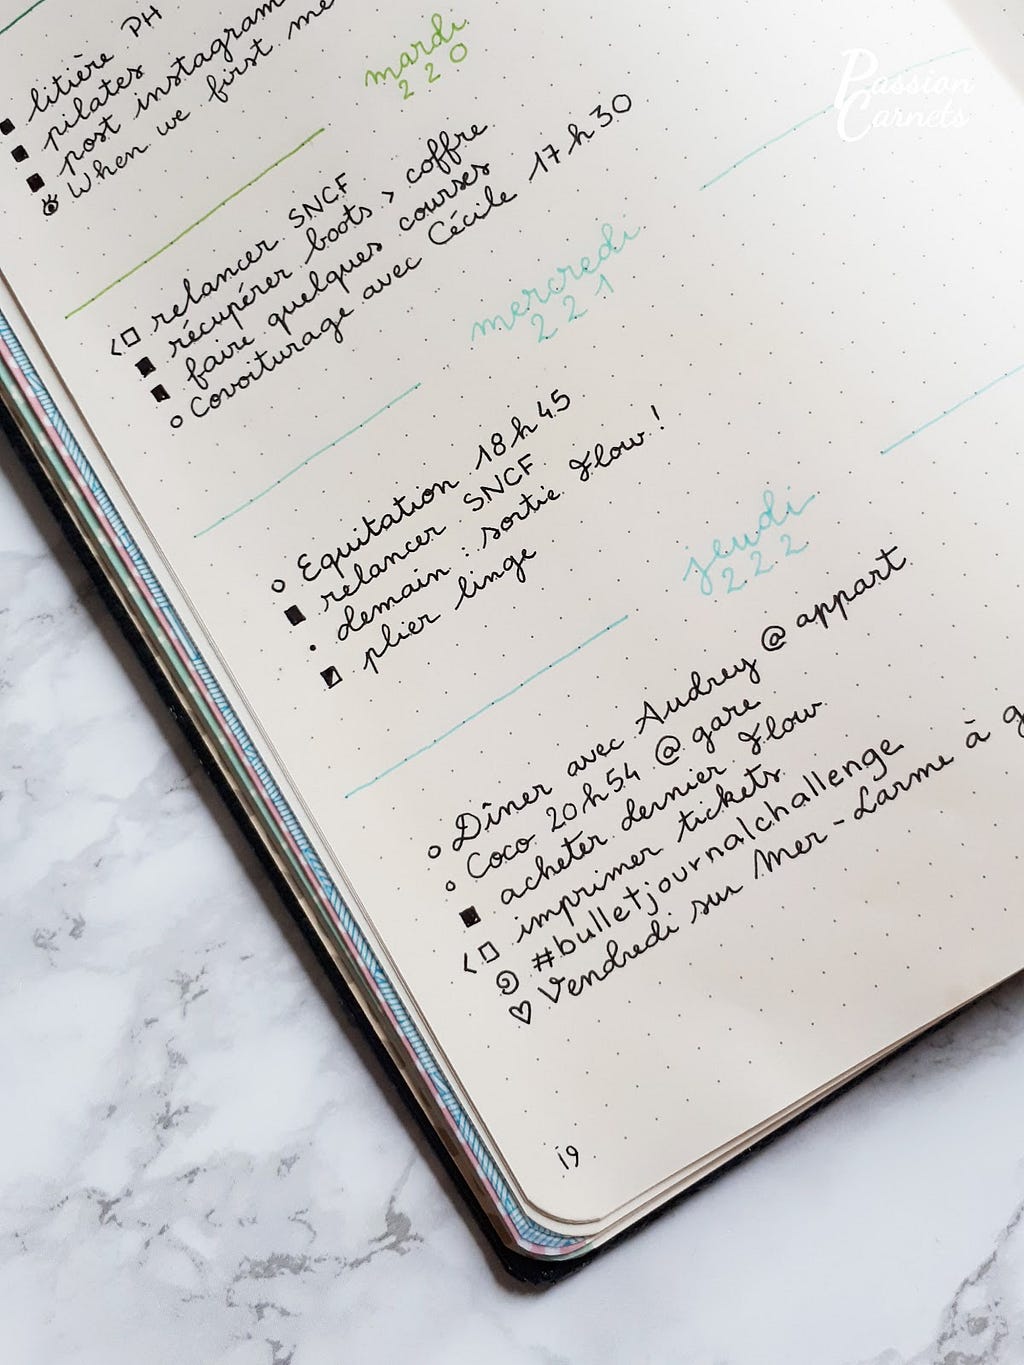 litière PH
pilates
post instagram
When we first me
mardi
220
relancer SNCF
récupérer boots > coffre
faire quelques courses
Covoiturage avec Cécile 17h30
mercredi
221
Equitation 18h45
relancer SNCF
demain : sortie Flow !
plier linge
jeudi
222
Dîner avec Audrey @ appart
Coco 20h54 @ gare
acheter dernier Flow
< imprimer tickets
#bulletjournalchallenge
♡ Vendredi sur Mer - Larme à g
19
Passion
Carnets